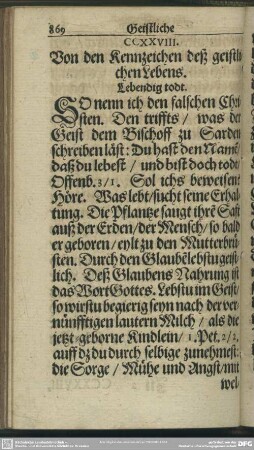 869 Geistliche
CCXXVIII.
Von den Kennzeichen deß geistli
chen Lebens.
Lebendig todt.
SO nenn ich den falschen Chri
sten. Den triffts / was der
Geist dem Bischoff zu Sarden
schreiben läst: Du hast den Namẽ /
daß du lebest / und bist doch todt /
Offenb. 3 / 1. Sol ichs beweisen?
Höre. Was lebt / sucht seine Erhal
tung. Die Pflantze saugt ihrẽ Safft
auß der Erden / der Mensch / so bald
er geboren / eylt zu den Mutterbrü
sten. Durch den Glaubẽ lebstu geist
lich. Deß Glaubens Nahrung ist
das Wort Gottes. Lebstu im Geist /
so wirstu begierig seyn nach der ver
nünfftigen lautern Milch / als die
jetzt geborne Kindlein / 1. Pet. 2 / 2.
auff dz du durch selbige zunehmest:
die Sorge / Mühe und Angst / mit
wel-